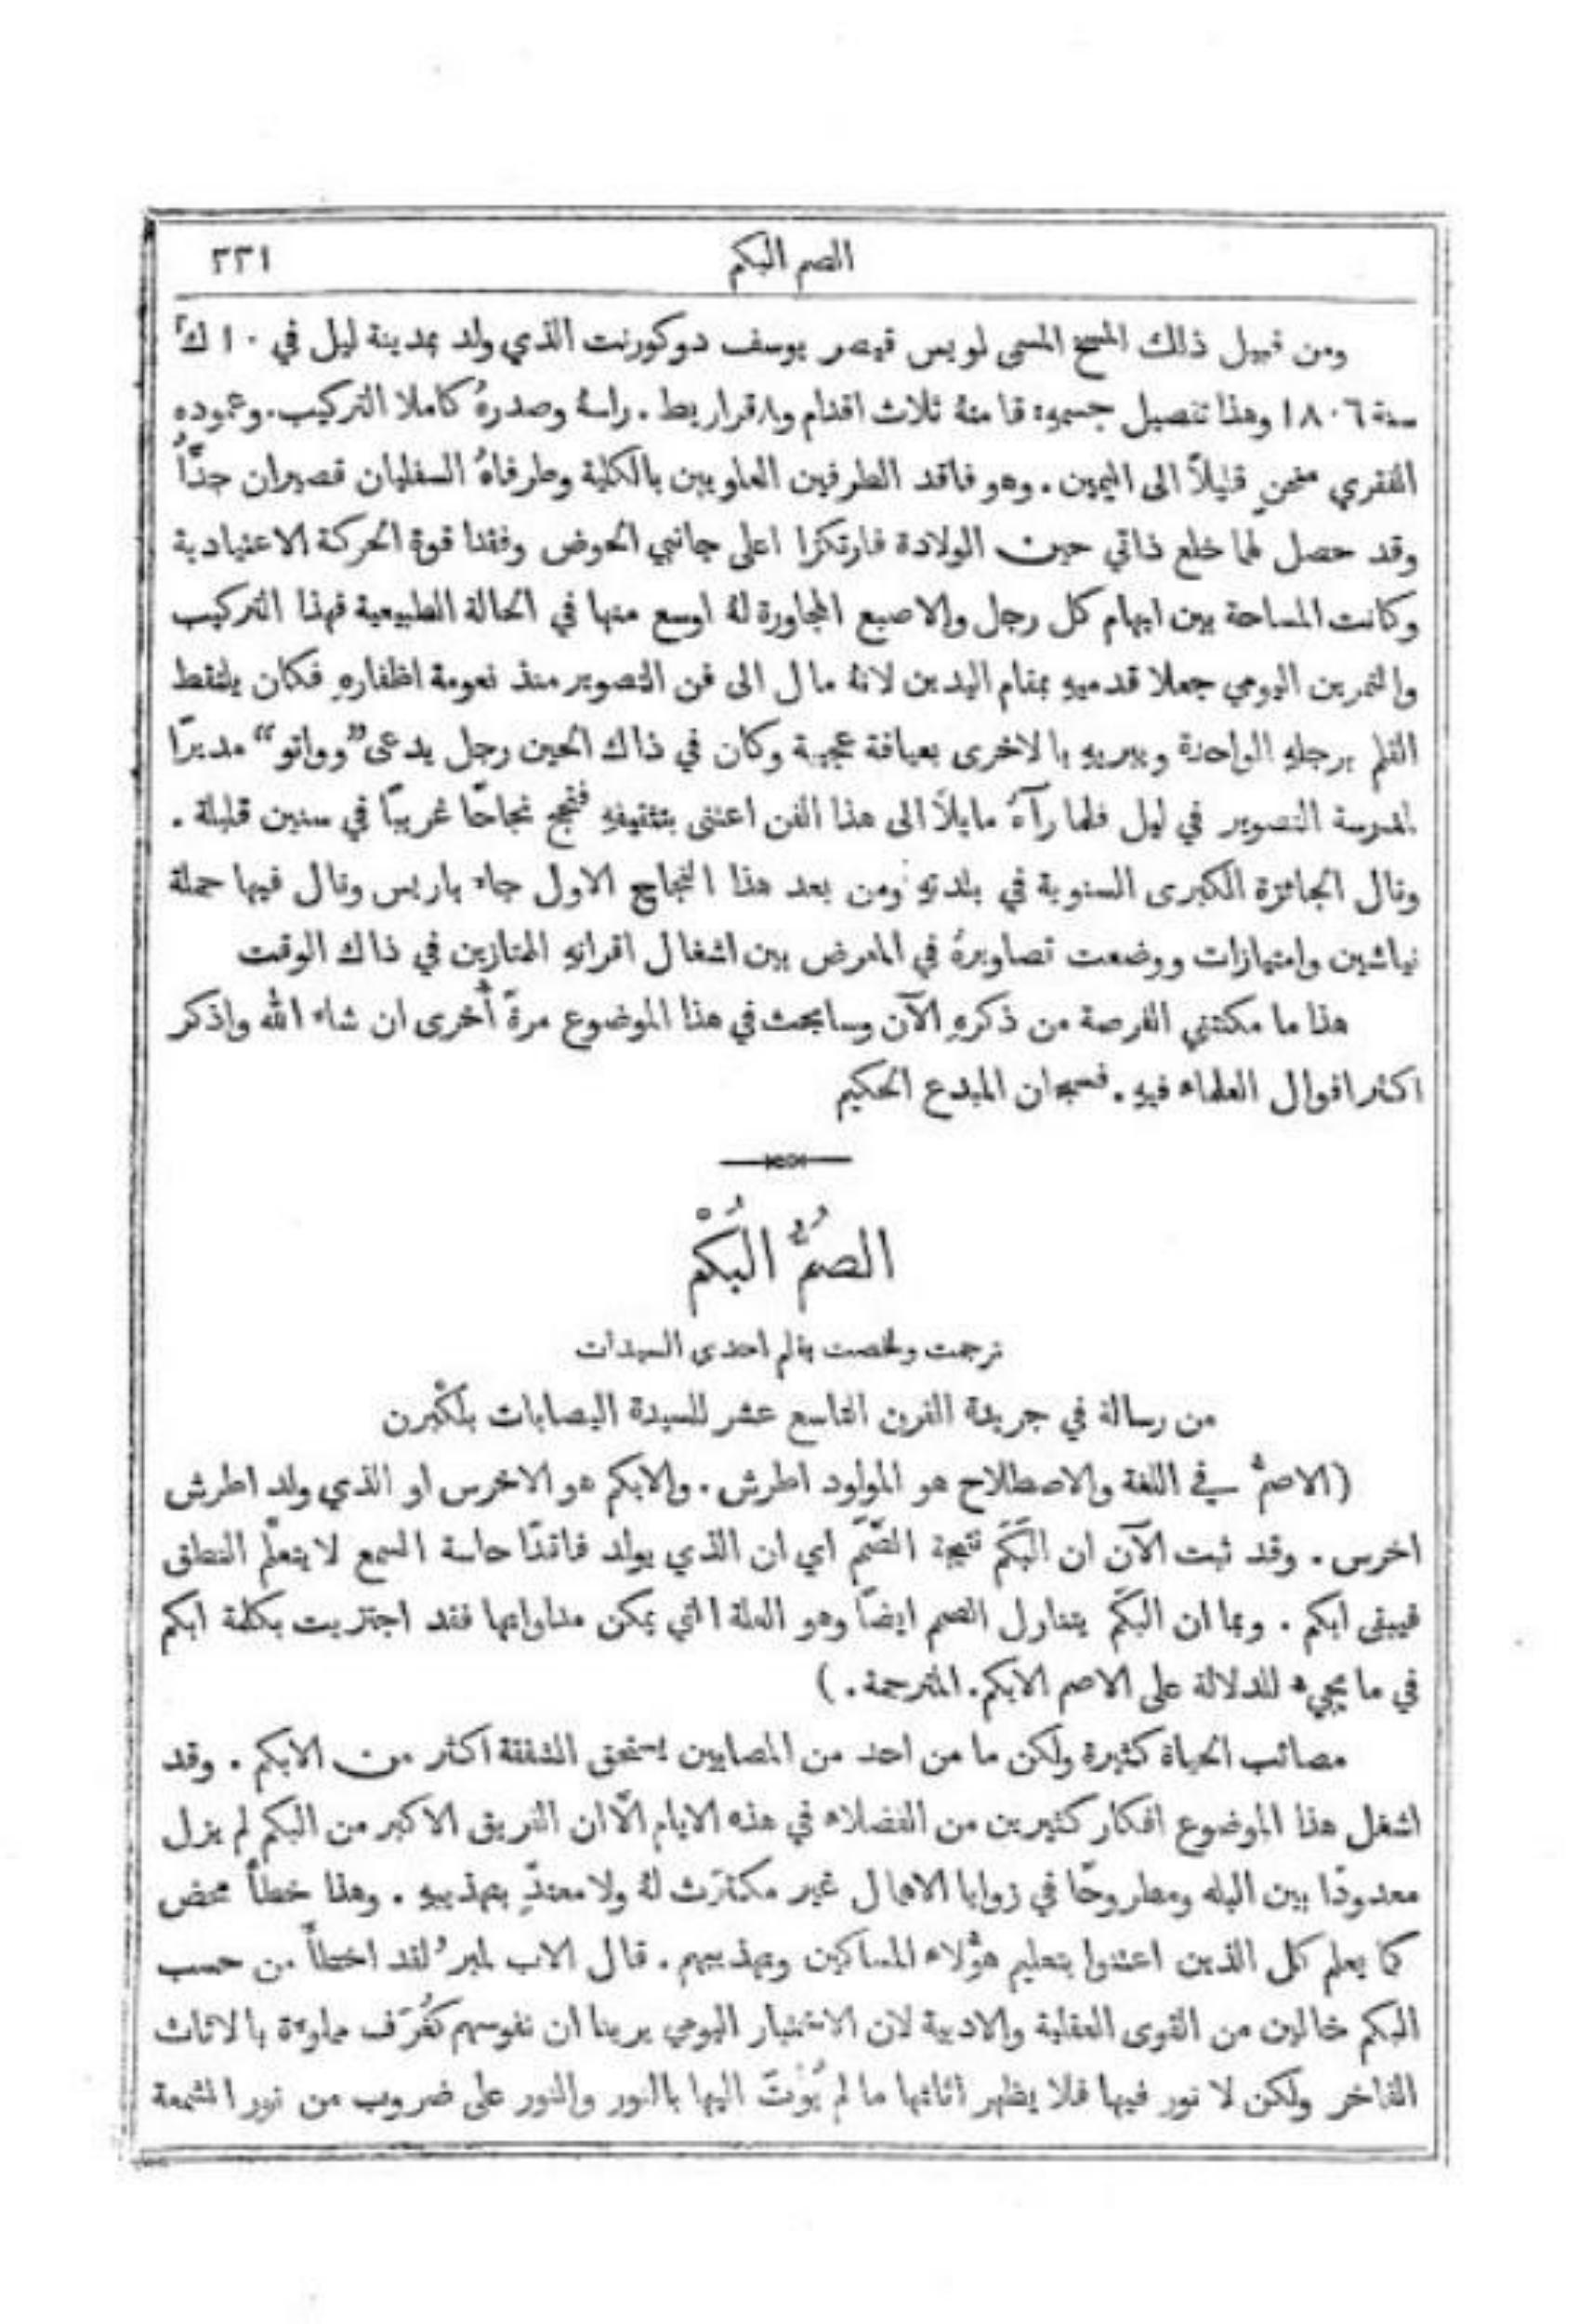 الصم البكم
٢٣١
ومن قبيل ذلك المسخ المسمى لويس قيصر يوسف دوكورنت الذي ولد بمدينة ليل في ١٠ ك١
سنة ١٨٠٦ وهذا تفصيل جسمهِ: قامتهُ ثلاث اقدام و٨ قراريط. راسهُ وصدرهُ كاملا التركيب. وعموده
الفقري منحنٍ قليلاً الى اليمين. وهو فاقد الطرفين العلويين بالكلية وطرفاهُ السفليان قصيران جدًّا
وقد حصل لهما خلع ذاتي حين الولادة فارتكزا اعلى جانبي الحوض وفقدا قوة الحركة الاعتيادية
وكانت المساحة بين ابهام كل رجل والاصبع المجاورة لهُ اوسع منها في الحالة الطبيعية فهذا التركيب
والتمرين اليومي جعلا قدميهِ بمقام اليدين لانهُ مال الى فن التصوير منذ نعومة اظفارهِ فكان يلتقط
القلم برجلهِ الواحدة ويبريهِ بالاخرى بعيافة عجيبة وكان في ذاك الحين رجل يدعى ”وواتو“ مديرًا
لمدرسة التصوير في ليل فلما رآهُ مايلاً الى هذا الفن اعتنى بتثقيفهِ فنجح نجاحًا غريبًا في سنين قليلة.
ونال الجائزة الكبرى السنوية في بلدتهِ ومن بعد هذا النجاح الاول جاء باريس ونال فيها جملة
نياشين وامتيازات ووضعت تصاويرهُ في المعرض بين اشغال اقرانهِ الممتازين في ذاك الوقت
هذا ما مكنتني الفرصة من ذكرهِ الآن وسابحث في هذا الموضوع مرةً أُخرى ان شاء الله واذكر
اكثر اقوال العلماء فيهِ. فسبحان المبدع الحكيم
الصُمُّ البُكْمُ
ترجمت ولخصت بقلم احدى السيدات
من رسالة في جريدة القرن التاسع عشر للسيدة اليصابات بلَكْبرن
(الاصمُّ في اللغة والاصطلاح هو المولود اطرش. والابكم هو الاخرس او الذي ولد اطرش
اخرس. وقد ثبت الآن ان البَكَمَ نتيجة الصَّمَمَ اي ان الذي يولد فاقدًا حاسة السمع لا يتعلَّم النطق
فيبقى ابكم. وبما ان البَكَمَ يتناول الصمم ايضًا وهو العلة التي يمكن مداواتها فقد اجتزيت بكلمة ابكم
في ما يجيء للدلالة على الاصم الابكم. المترجمة.)
مصائب الحياة كثيرة ولكن ما من احد من المصابين يستحق الشفقة اكثر من الابكم. وقد
اشغل هذا الموضوع افكار كثيرين من الفضلاء في هذه الايام الَّا ان الفريق الاكبر من البكم لم يزل
معدودًا بين البله ومطروحًا في زوايا الاهمال غير مكترَث لهُ ولا معتدٍّ بتهذيبهِ. وهذا خطأٌ محض
كما يعلم كل الذين اعتنوا بتعليم هؤُلاء المساكين وتهذيبهم. قال الاب لمبر ”لقد اخطأَ من حسب
البكم خالين من القوى العقلية والادبية لان الاختبار اليومي يرينا ان نفوسهم كغُرَف مملوءة بالاثاث
الفاخر ولكن لا نور فيها فلا يظهر اثاثها ما لم يُؤتَ اليها بالنور والنور على ضروب من نور الشمعة